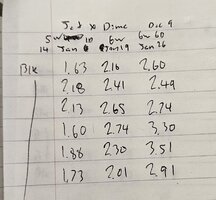 Dime Dec 9
5w 10 6w 6w 60
14 Jan Jan 19 Jan 26
Blk 1.63 2.16 2.60
2.18 2.41 2.49
2.13 2.65 2.74
1.60 2.74 3.30
1.88 2.30 3.51
1.73 2.01 2.91